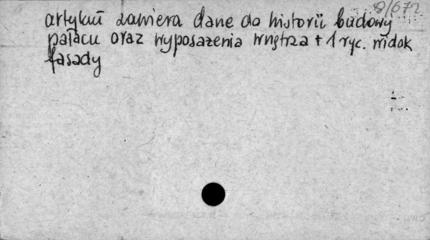 8/672
artykuł zawiera dane do historii budowy
pałacu oraz wyposażenia wnętrza + 1 ryc. widok
fasady